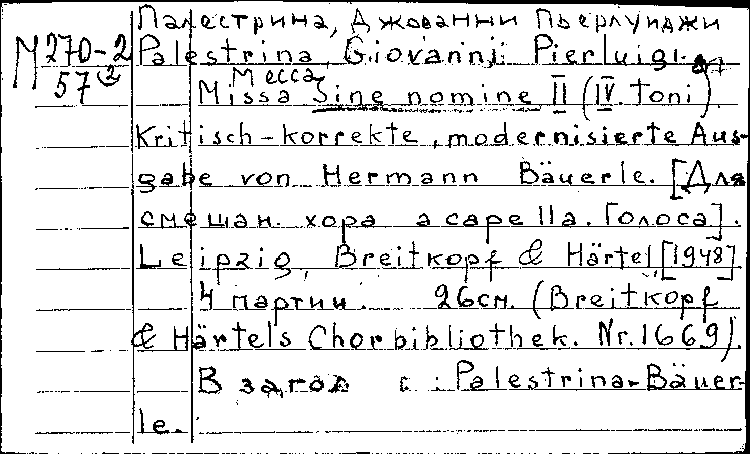 Палестрина, Джованни Пьерлуиджи
М 270-2 Palestrina, Giovanni Pierluigi.
57② Месса
Missa Sine nomine II (IV. toni).
Kritisch-korrekte, modernisierte Aus-
gabe von Hermann Bäuerle. [Для
смешан. хора a capella. Голоса].
Leipzig, Breitkopf & Härtel, [1948].
4 партии. 26см. (Breitkopf
& Härtels Chorbibliothek. Nr. 1669).
В загол : Palestrina-Bäuer-
le.